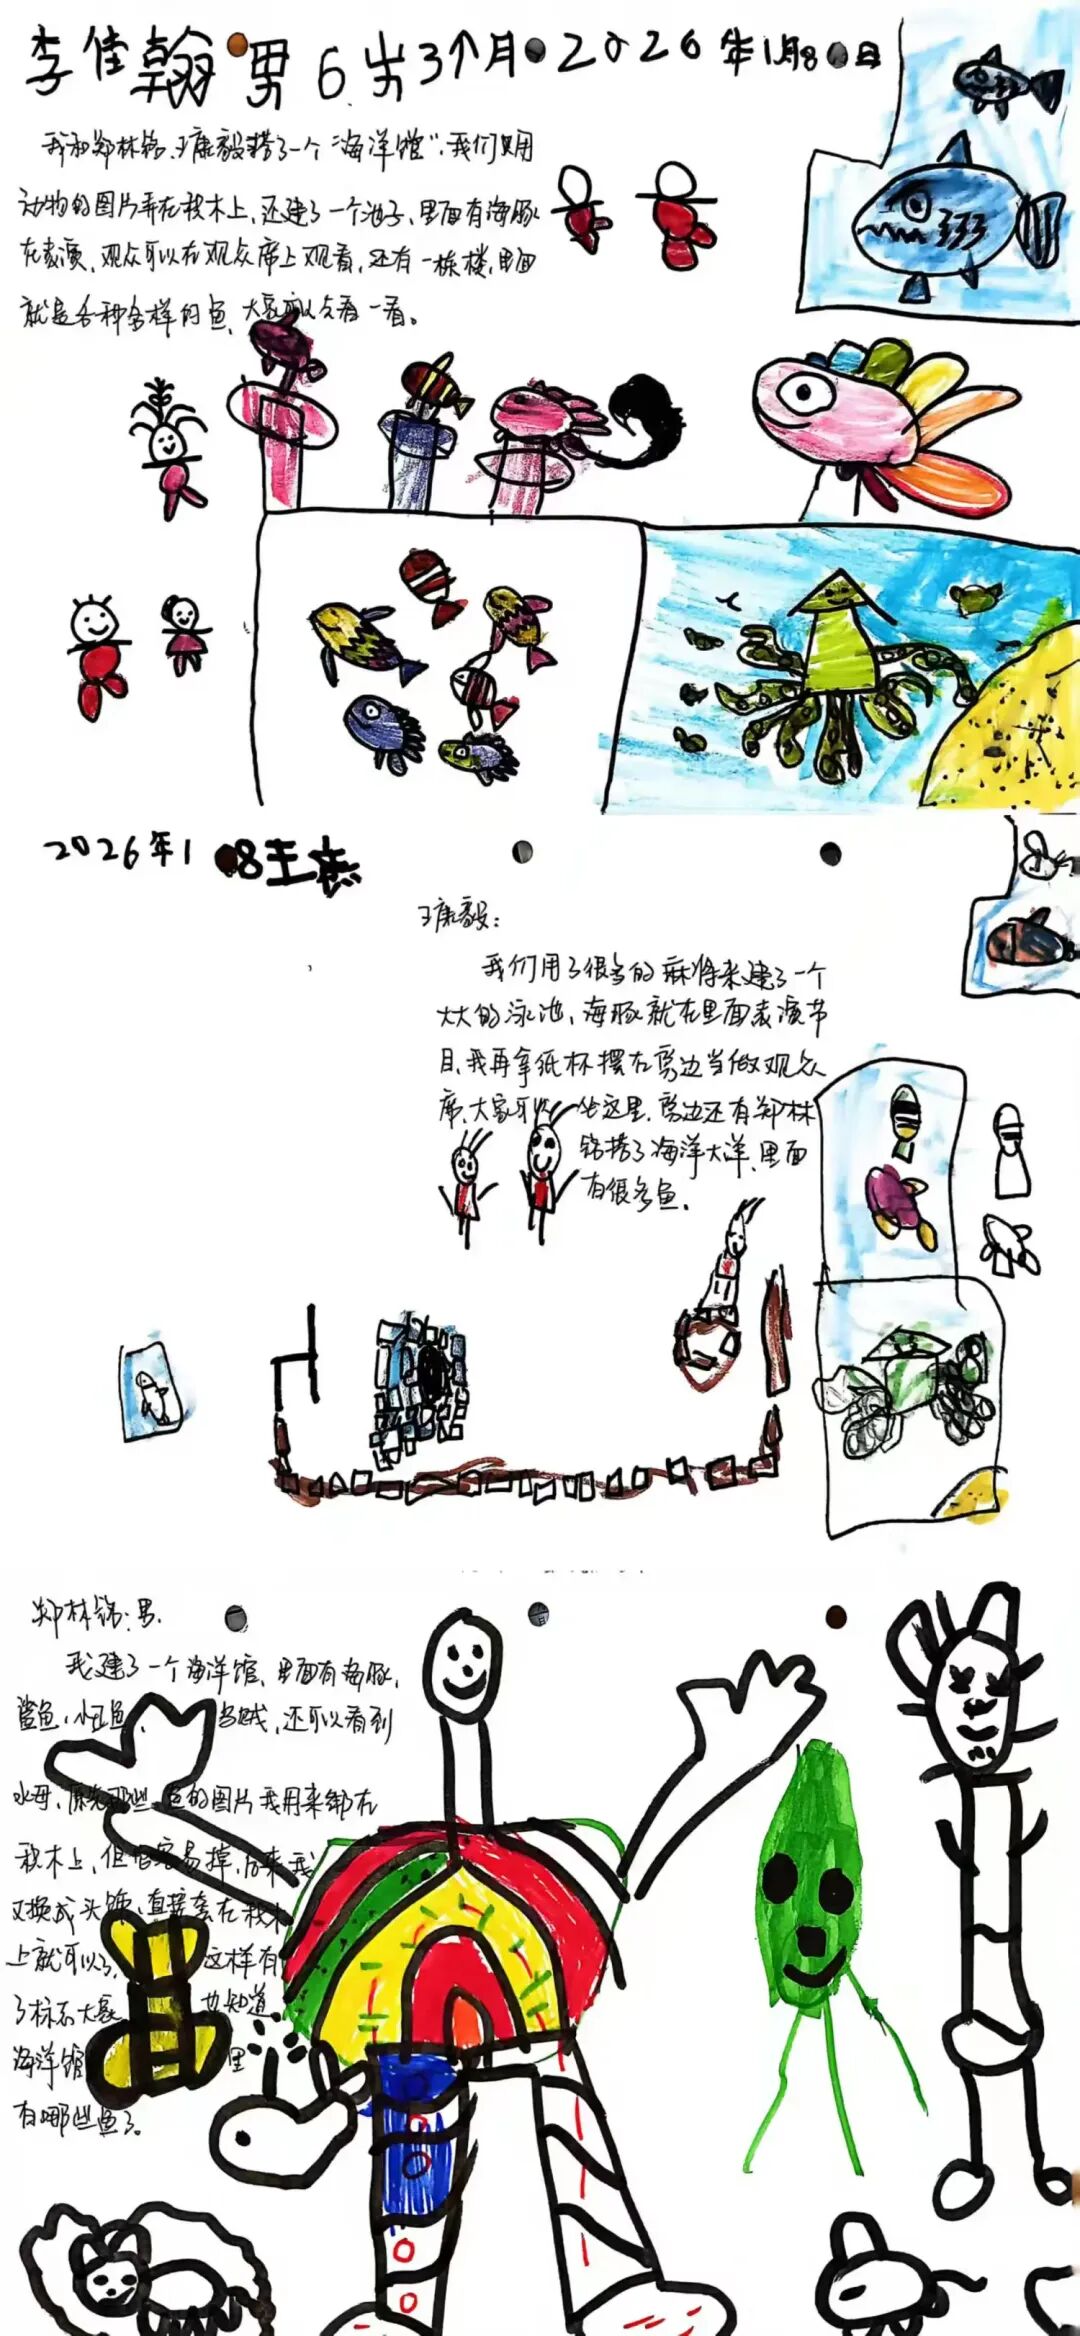 李佳翰 男 6岁3个月 2026年1月8日
我和郑林铭、王康毅搭了一个“海洋馆”,我们用
动物的图片弄在积木上,还建了一个池子,里面有海豚
在表演,观众可以在观众席上观看,还有一栋楼,里面
就是各种各样的鱼,大家可以去看一看。
2026年1 8王
王康毅:
我们用了很多的麻将来建了一个
大大的泳池,海豚就在里面表演节
目,我再拿纸杯摆在旁边当做观众
席,大家可以坐这里,旁边还有郑林
铭搭了海洋大洋,里面
有很多鱼。
郑林铭:男.
我建了一个海洋馆,里面有海豚,
鲨鱼,小丑鱼, 还可以看到
水母,原先那些鱼的图片我用来绑在
积木上,但容易掉,后来我
又换成头饰,直接套在积木
上就可以了, 这样有
了标志大家 也知道
海洋馆 里
有哪些鱼了。